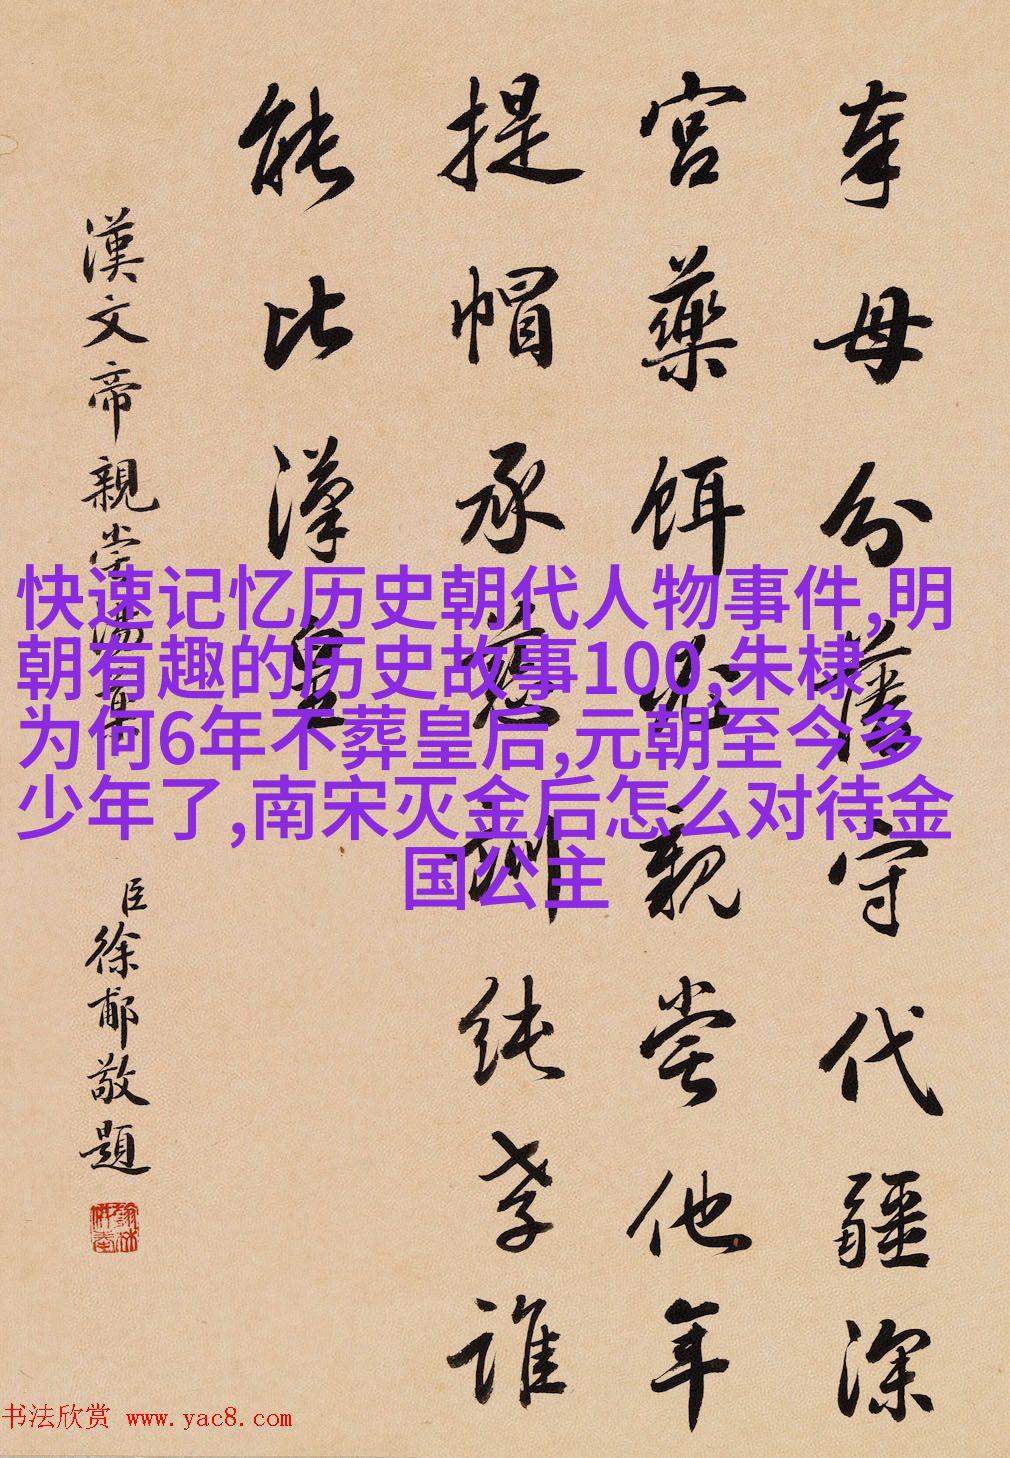 奉母分藩守代疆深
宮藥餌必親嘗他年
提帽承慈訓純孝誰
能比漢皇
漢文帝親嘗湯藥
臣徐郙敬題
快速记忆历史朝代人物事件,明
朝有趣的历史故事100,朱棣
为何6年不葬皇后,元朝至今多
少年了,南宋灭金后怎么对待金
国公主
书法欣赏 www.yac8.com